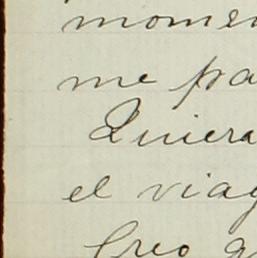 momen
me pa
Quiera
el viag
Creo q